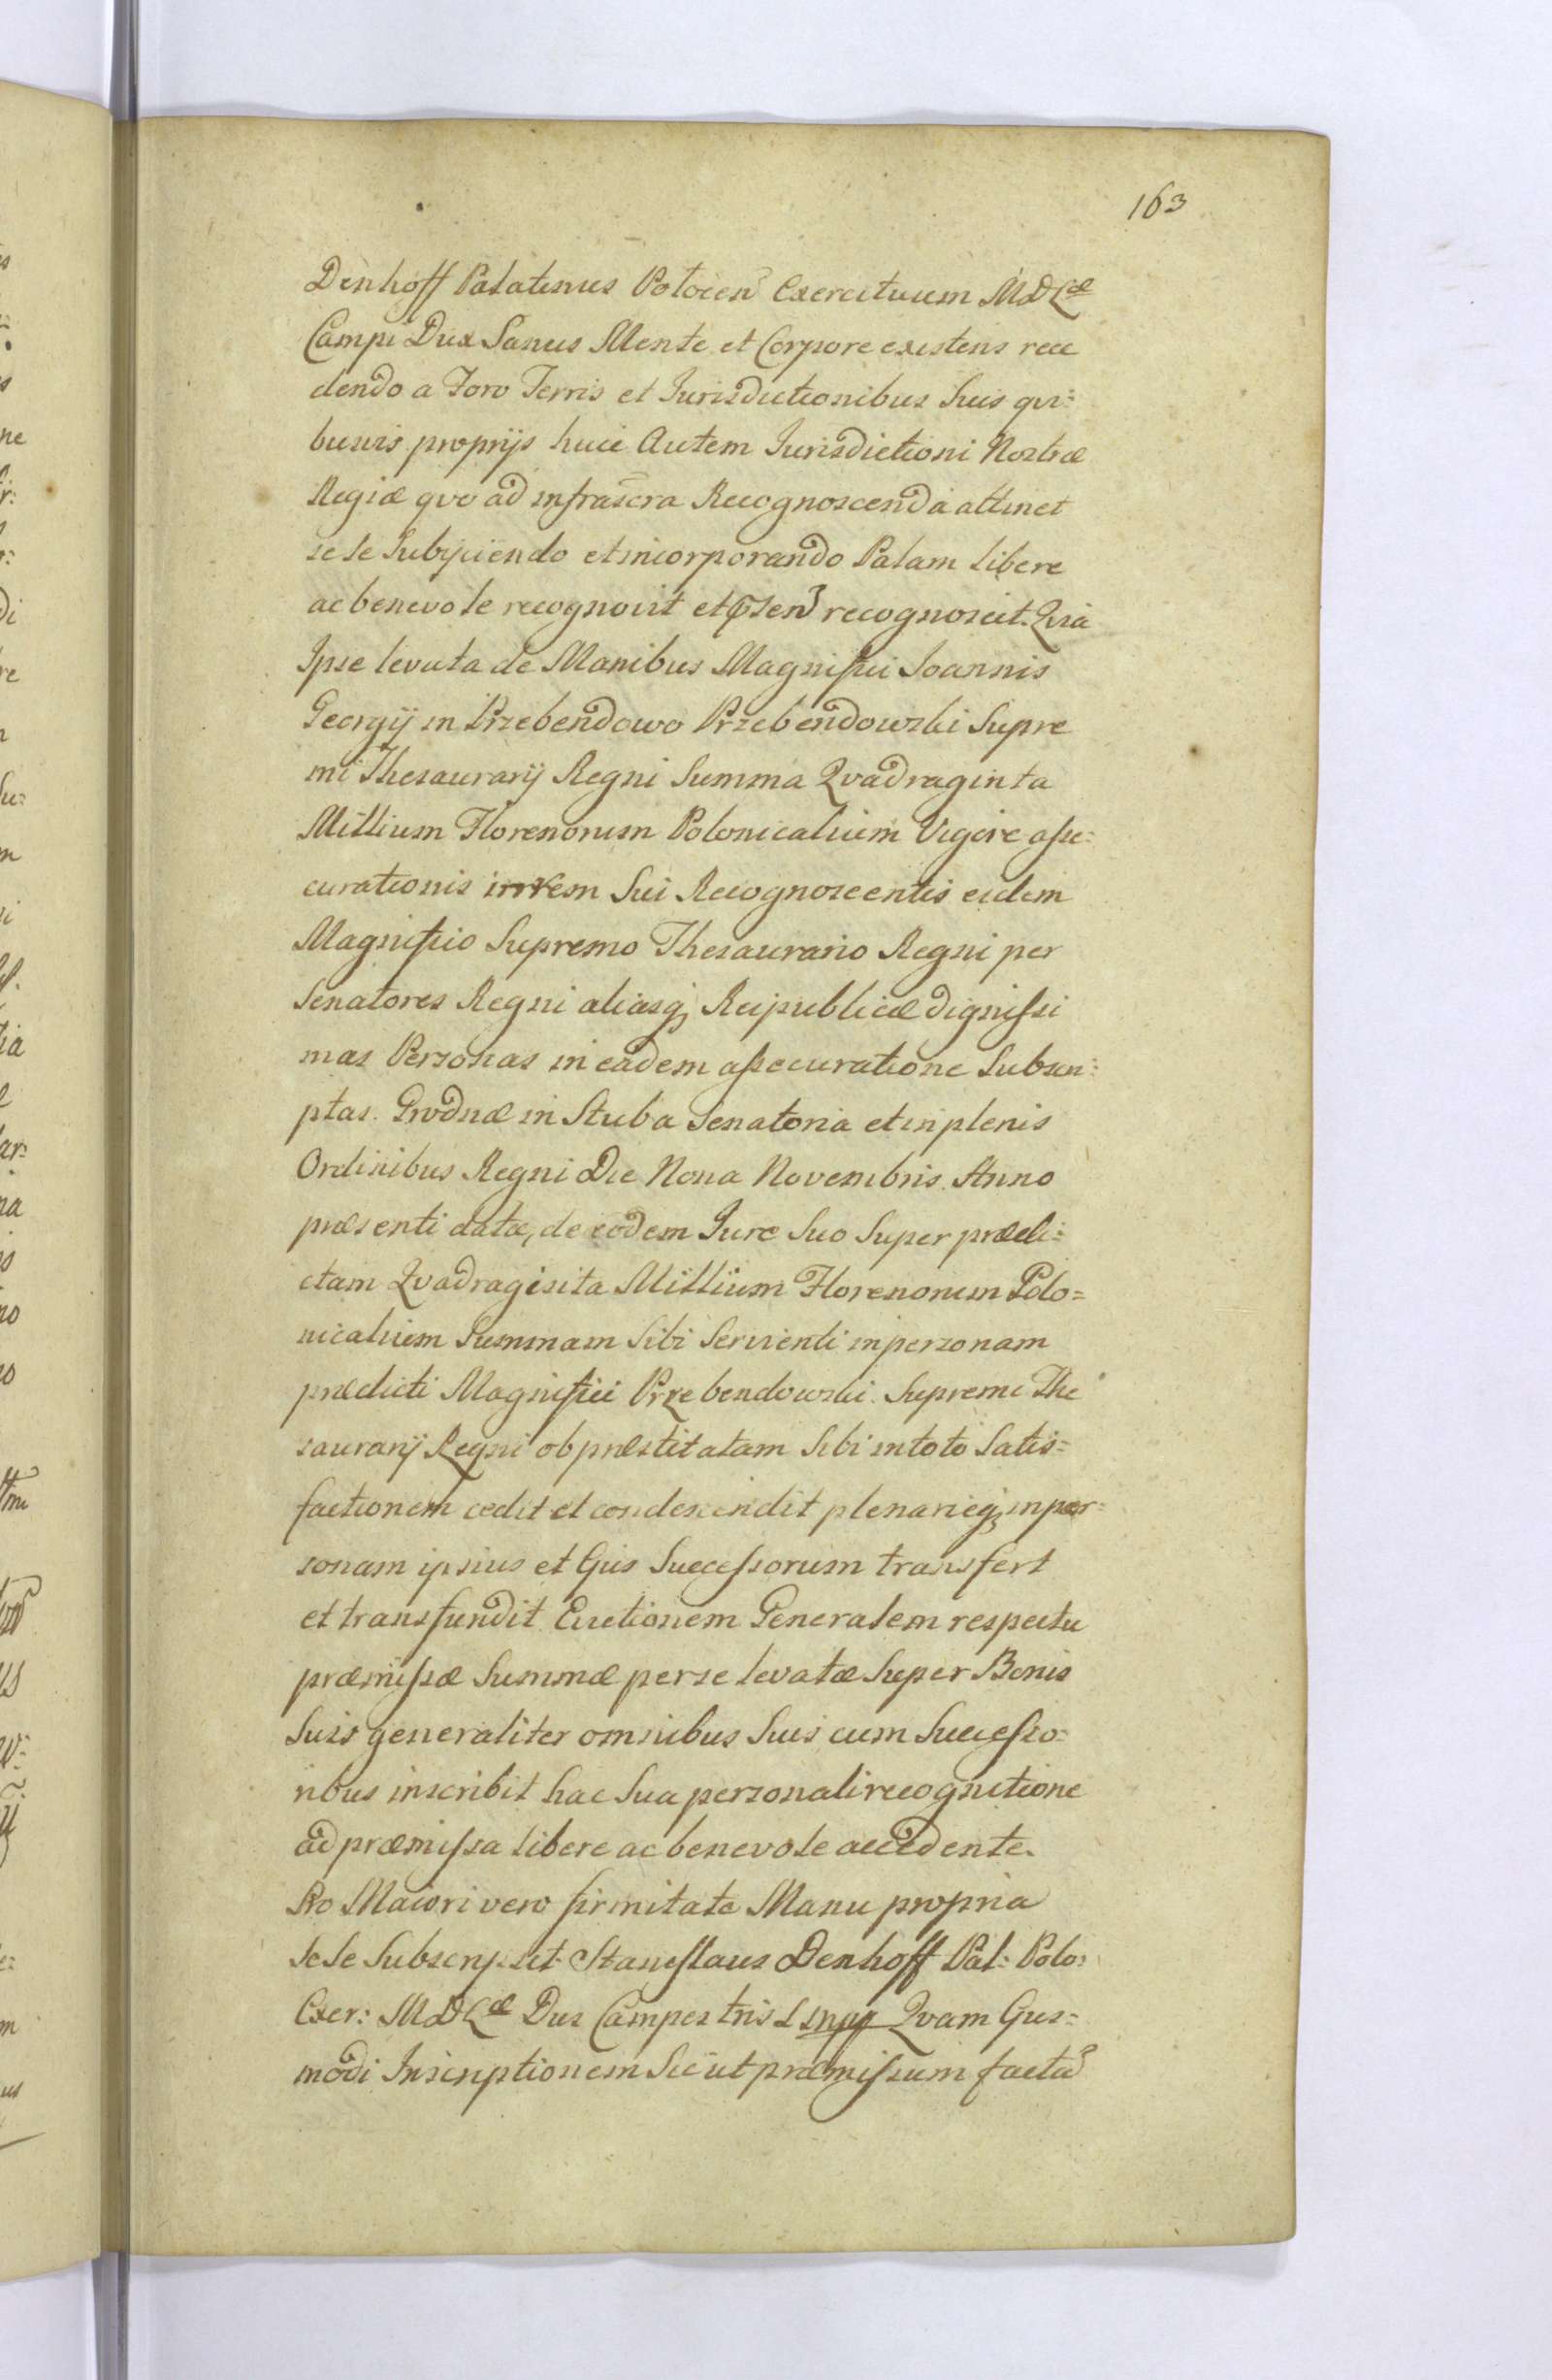 163
Denhoff Palatinus Polocen Exercituum MDLæ
Campi Dux Sanus Mente et Corpore existens rece
dendo a Foro Terris et Jurisdictionibus Suis qvi=
busvis proprijs huic Autem Jurisdictioni Nostræ
Regiæ qvo ad infrascra Recognoscenda attinet
sese Subijciendo et incorporando Palam libere
ac benevole recognovit et præsen recognoscit. Qvia
Ipse levata de Manibus Magnifici Joannis
Georgij in Przebendowo Przebendowski Supre
mi Thesaurarij Regni Summa Qvadraginta
Millium Florenorum Polonicalium Vigore asse=
curationis in rem Sui Recognoscentis eidem
Magnifico Supremo Thesaurario Regni per
Senatores Regni aliasq Reipublicæ dignissi
mas Personas in eadem assecuratione Subscri=
ptas. Grodnæ in Stuba Senatoria et in plenis
Ordinibus Regni Die Nona Novembris Anno
præsenti datæ, de eodem Jure Suo Super prædi=
ctam Qvadraginta Millium Florenorum Polo=
nicalium Summam Sibi Servienti in personam
prædicti Magnifici Przebendowski Supremi The
saurarij Regni ob præstitatam Sibi in toto Satis=
factionem cedit et condescendit plenarieq in per=
sonam ipsius et Ejus Successorum transfert
et transfundit Evictionem Generalem respectu
præmissæ Summæ per se levatæ Super Bonis
Suis generaliter omnibus Suis cum Successo=
ribus inscribit hac Sua personali recognitione
ad præmissa libere ac benevole accedente.
Pro Maiori vero firmitate Manu propria
Sese Subscripsit Stanislaus Denhoff Pal: Polo:
Exer: MDLæ Dux Campestris Qvam Ejus=
modi Inscriptionem Sic ut præmissum facta